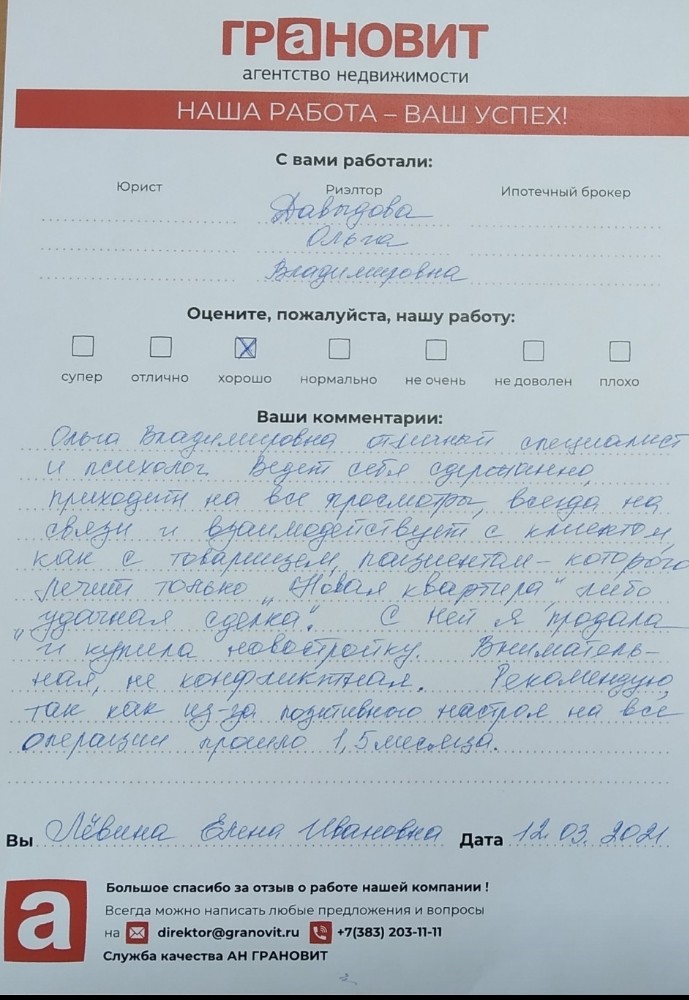 ГРаНОВИТ
агентство недвижимости
НАША РАБОТА – ВАШ УСПЕХ!
С вами работали:
Юрист Риэлтор Ипотечный брокер
Давыдова
Ольга
Владимировна
Оцените, пожалуйста, нашу работу:
супер отлично хорошо нормально не очень не доволен плохо
Ваши комментарии:
Ольга Владимировна отличный специалист
и психолог. Ведет себя сдержанно,
приходит на все просмотры, всегда на
связи и взаимодействует с клиентом,
как с товарищем, пациентом – которого
лечит только „Новая квартира" либо
"удачная сделка". С ней я продала
и купила новостройку. Вниматель-
ная, не конфликтная. Рекомендую,
так как из-за позитивного настроя на все
операции прошло 1,5 месяца.
Вы Лёвина Елена Ивановна Дата 12.03.2021
а
Большое спасибо за отзыв о работе нашей компании !
Всегда можно написать любые предложения и вопросы
на direktor@granovit.ru +7(383) 203-11-11
Служба качества АН ГРАНОВИТ